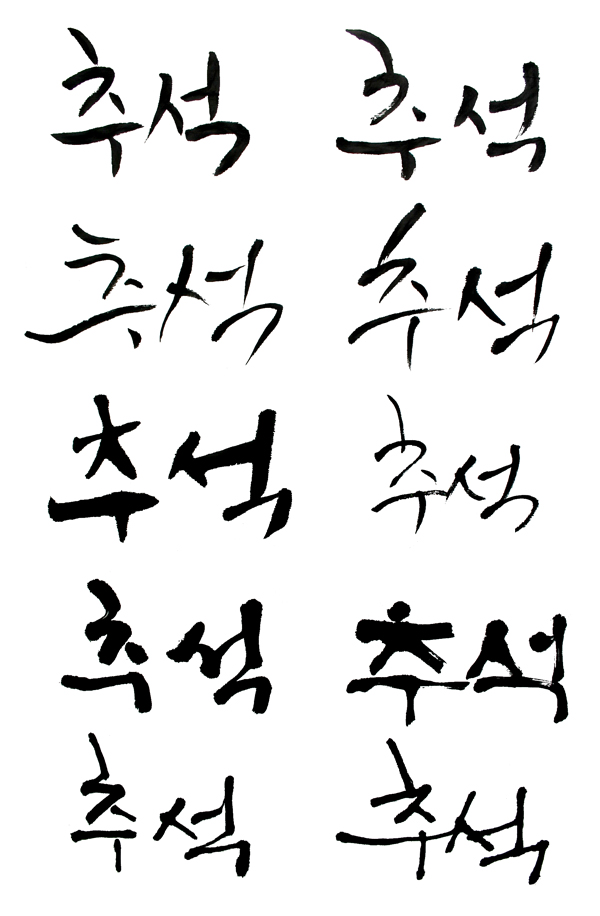 추석 추석
추석 추석
추석 추석
추석 추석
추석 추석